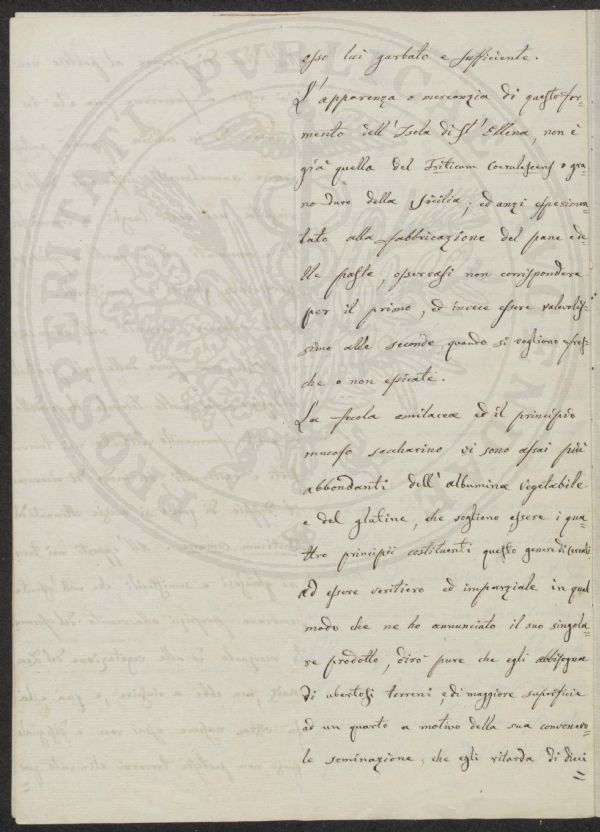 esso lui garbato e sufficiente.
L'apparenza o mercanzia di questo for-
mento dell'Isola di S.t Ellena, non è
già quella del Triticum Coerulescens o gra-
no duro della Sicilia; ed anzi esperimen-
tato alla fabbricazione del pane e de-
lle paste, osservasi non corrispondere
per il primo, ed invece essere valevolis-
simo alle seconde, quando si vogliono fres-
che o non essicate.
La fecola amilacea ed il principio
mucoso saccharino vi sono assai più
abbondanti dell'albumina vegetabile
e del glutine, che sogliono essere i qua-
ttro principii costituenti questo genere di Cereali.
Ad essere veritiero ed imparziale in quel
modo che ne ho annunciato il suo singola-
re prodotto, dirò pure che egli abbisogna
di ubertosi terreni, e di maggiore superficie
ad un quarto a motivo della sua convenevo-
le seminazione, che egli ritarda di dieci
PROSPERITATI PUBLICAE